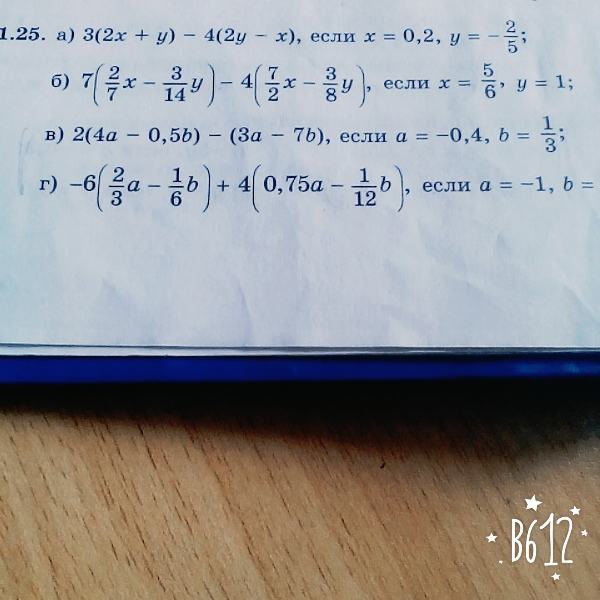 1.25. а) 3(2x + y) − 4(2y − x), если x = 0,2, y = −2/5;
б) 7(2/7x − 3/14y) − 4(7/2x − 3/8y), если x = 5/6, y = 1;
в) 2(4a − 0,5b) − (3a − 7b), если a = −0,4, b = 1/3;
г) −6(2/3a − 1/6b) + 4(0,75a − 1/12b), если a = −1, b =
B612